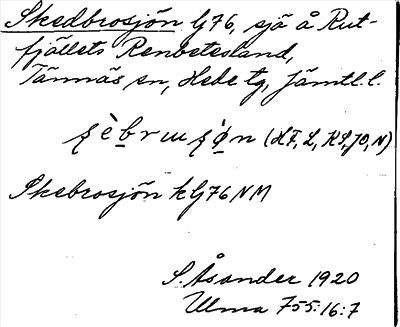 Skedbrosjön Gj76, sjö å Rut-
fjällets Renbetesland,
Tännäs sn, Hede tg, Jämtl. l.
(HF, L, KS, JO, N)
Skebrosjön k Gj76 NM
S. Åsander 1920
Ulma 755:16:7